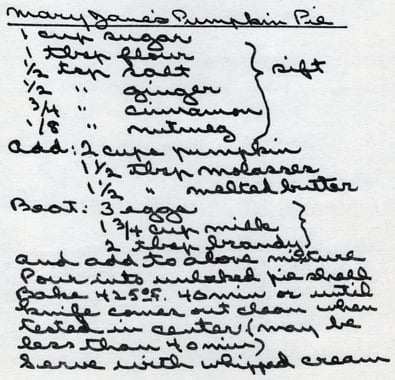 Mary Jane's Pumpkin Pie
1 cup sugar
1 tbsp flour
1/2 tsp salt } sift
1/2 " ginger
3/4 " cinnamon
1/8 " nutmeg
Add: 2 cups pumpkin
1 1/2 tbsp molasses
1 1/2 " melted butter
Beat: 3 eggs
1 3/4 cup milk
2 tbsp brandy
and add to above mixture
Pour into unbaked pie shell
Bake 425°F. 40 min or until
knife comes out clean when
tested in center. (may be
less than 40 min)
Serve with whipped cream